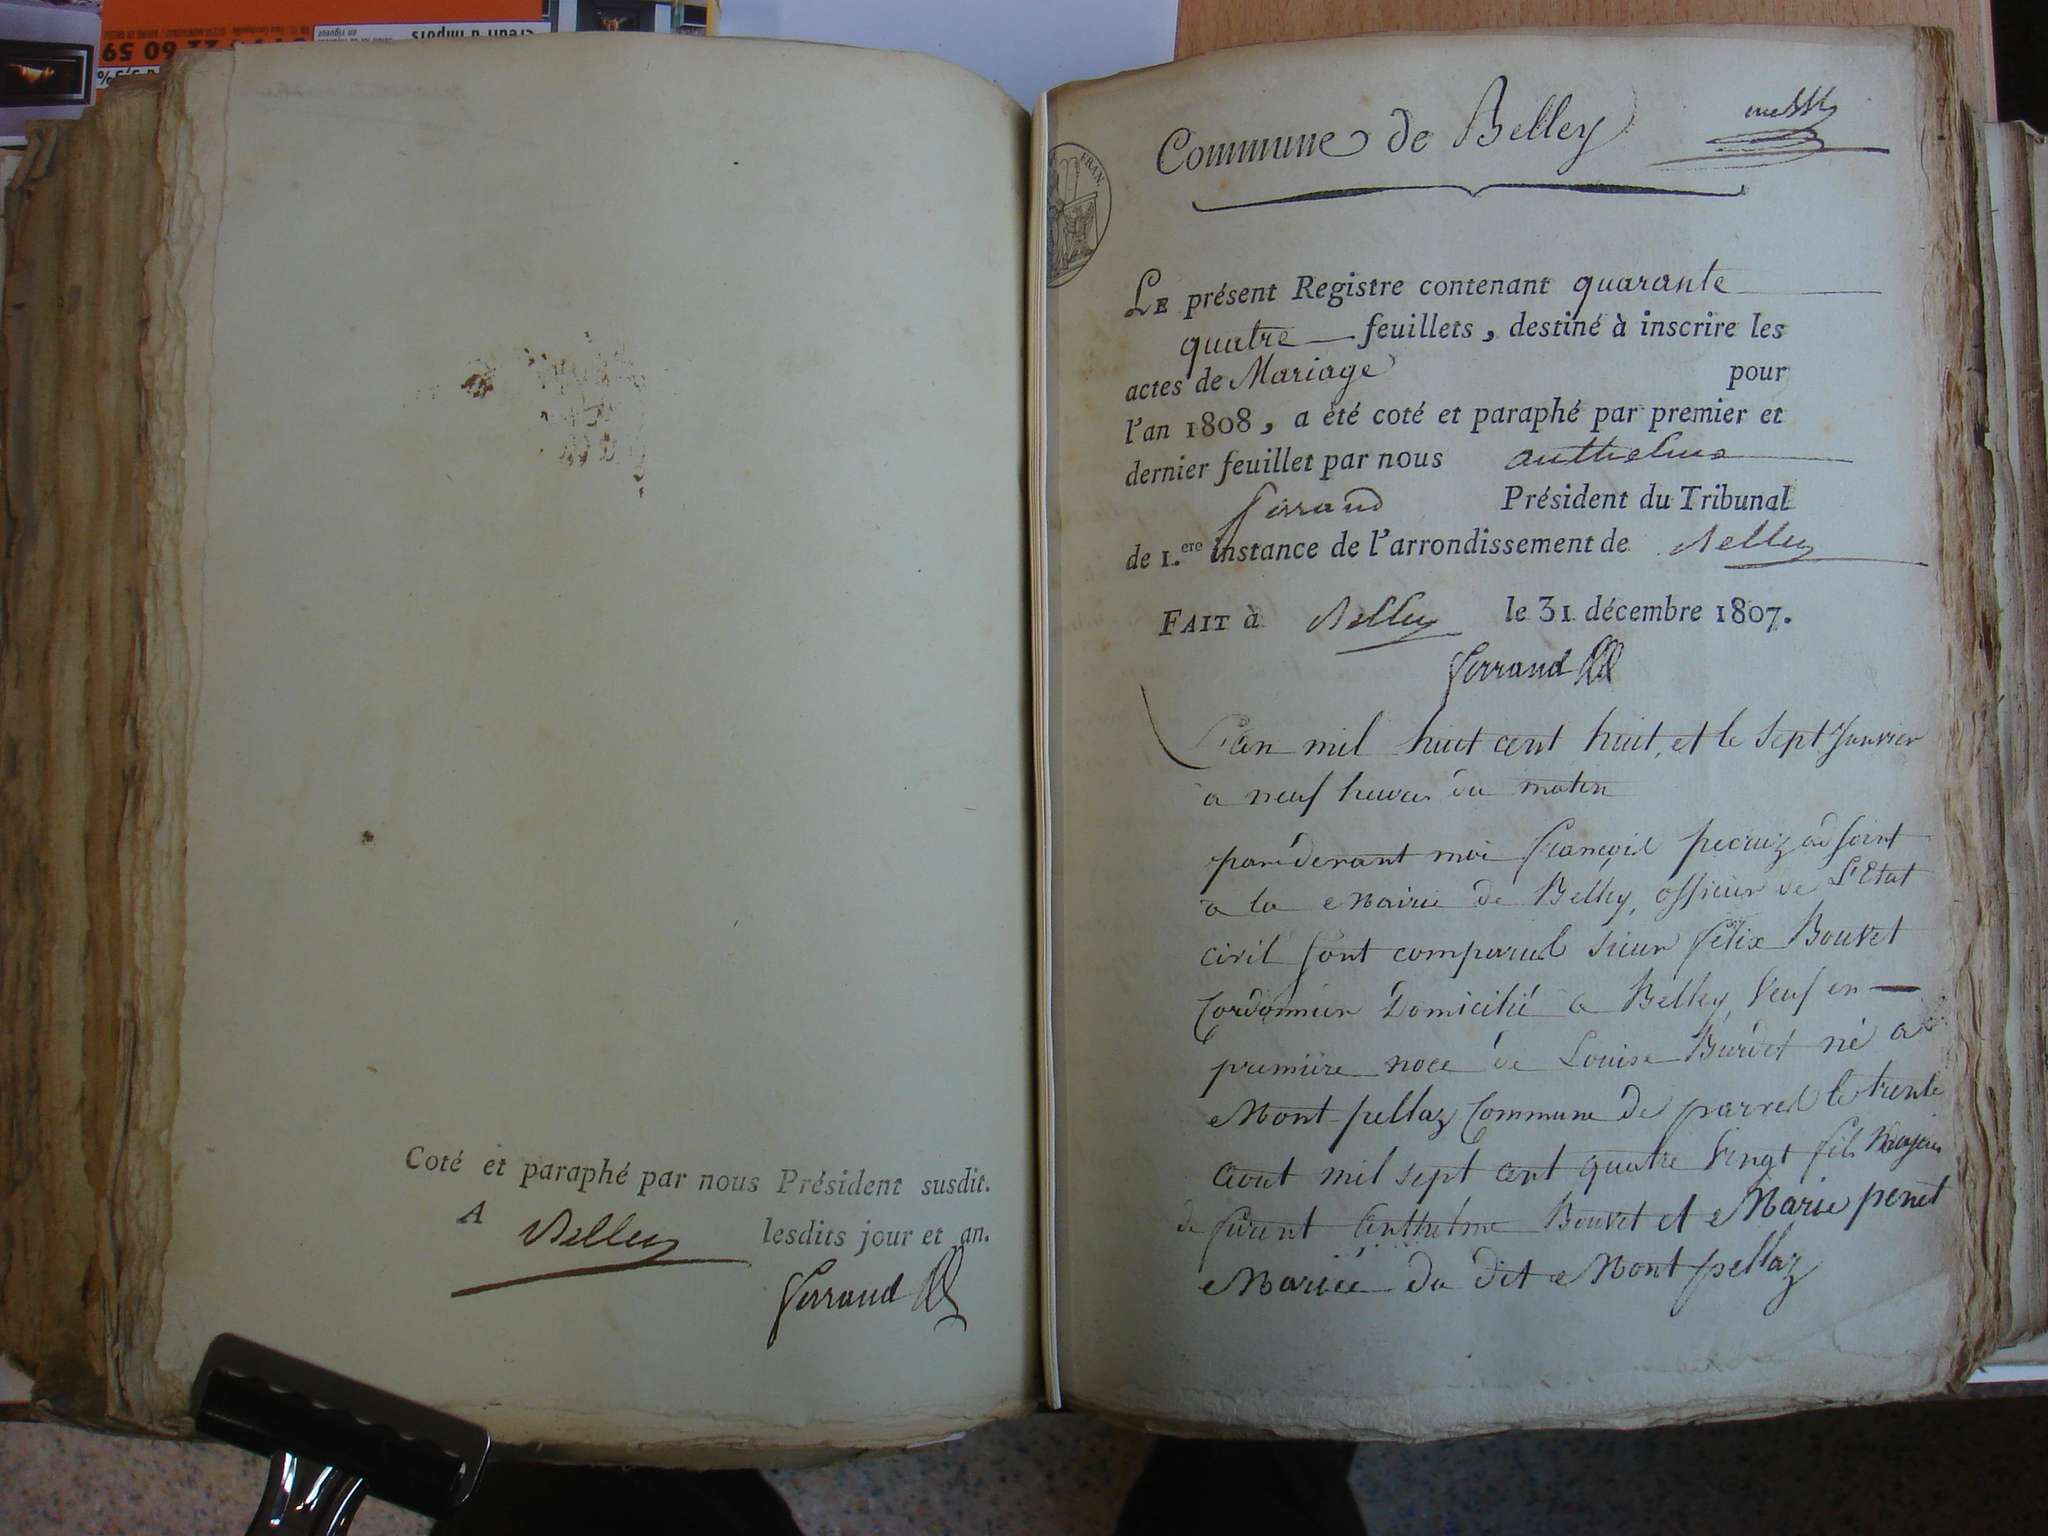 60 59
Crédit d'impôts
en vigueur
Coté et paraphé par nous Président susdit.
A Belley lesdits jour et an.
Ferrand
Commune de Belley
FRAN.
LE présent Registre contenant quarante
quatre feuillets, destiné à inscrire les
actes de Mariage pour
l'an 1808, a été coté et paraphé par premier et
dernier feuillet par nous anthelme
ferrand Président du Tribunal
de 1.ere instance de l'arrondissement de Belley
FAIT à Belley le 31 décembre 1807.
ferrand
L'an mil huit cent huit, et le sept Janvier
a neuf heures du matin
pardevant moi françois adjoint
a la Mairie de Belley, officier de L'Etat
civil sont comparus sieur félix Bouvet
Cordonnier Domicilié a Belley, Veuf en
premiere noce de Louise Burdet né a
Montpellaz Commune de parves le trente
aout mil sept cent quatre Vingt fils Majeur
de feu Anthelme Bouvet et Marie penet
Mariée du dit Montpellaz